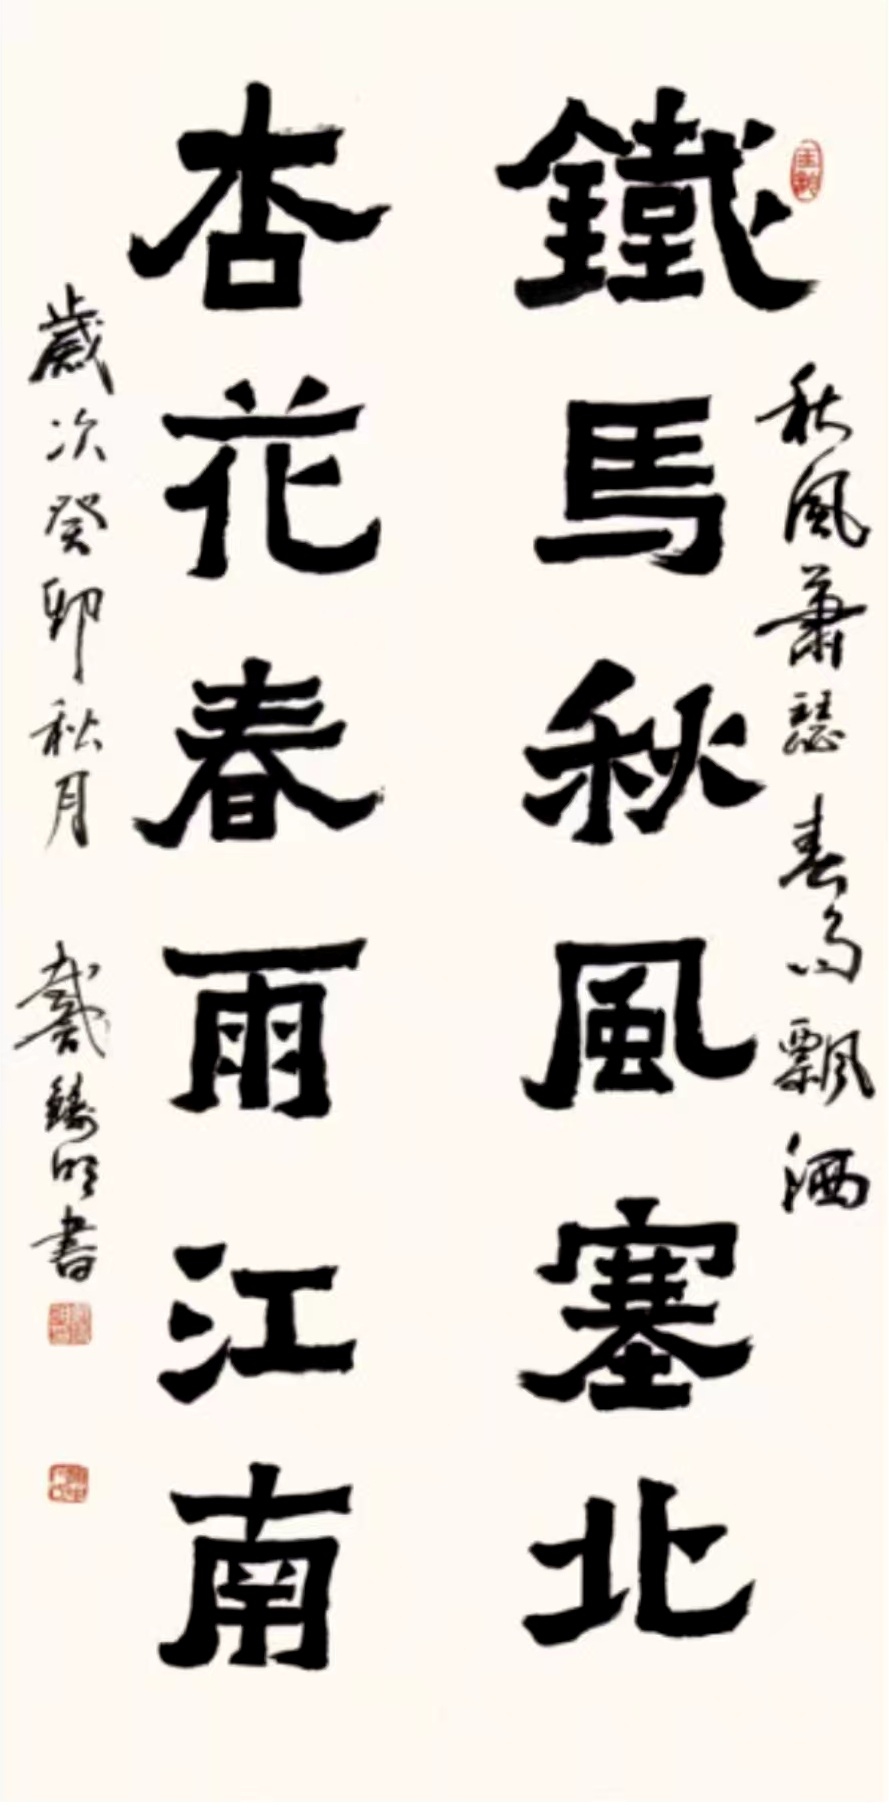 鐵馬秋風塞北
秋風蕭瑟春雨飄洒
杏花春雨江南
歲次癸卯秋月 戴鑄明書